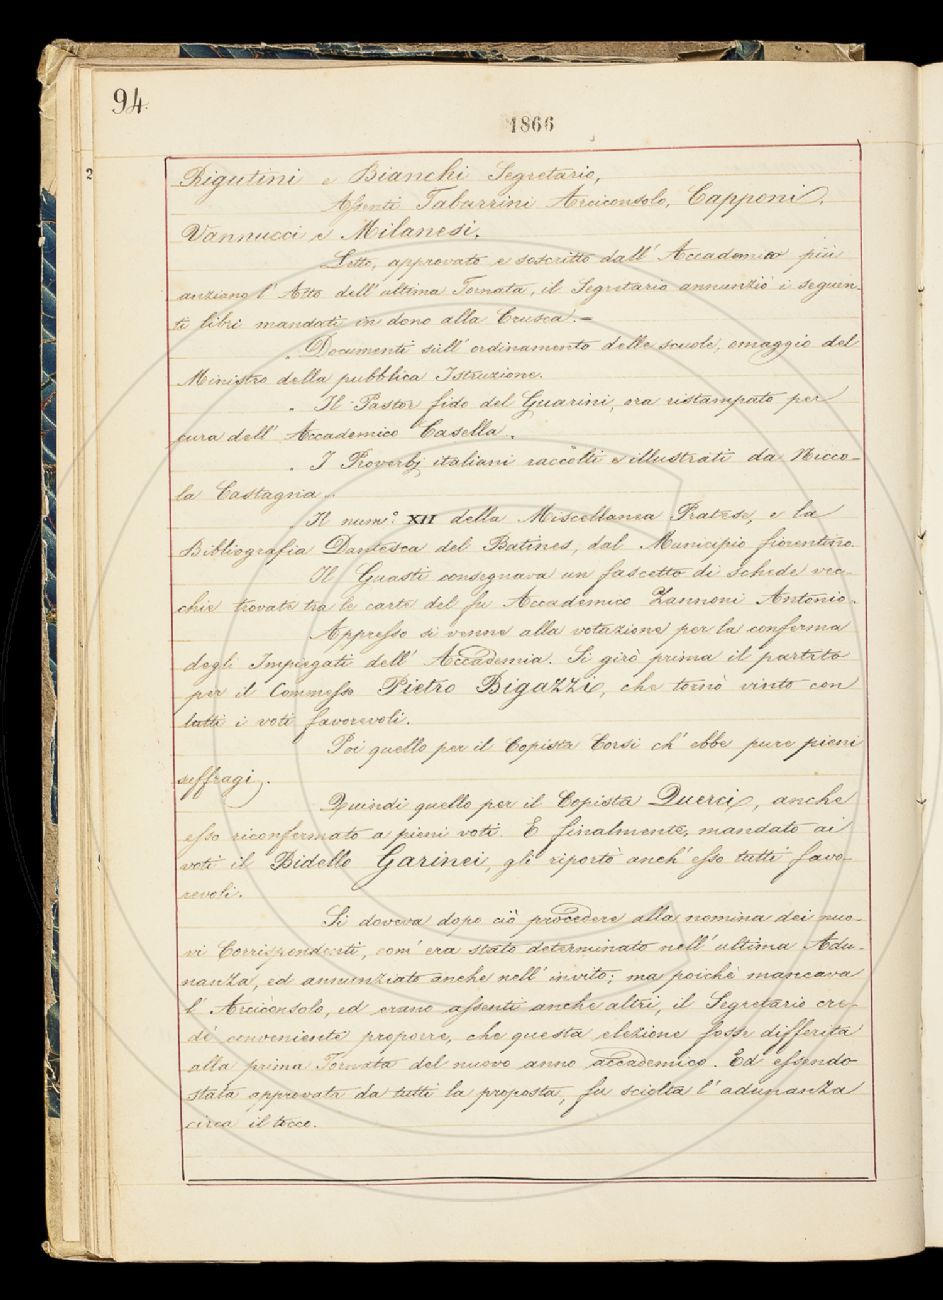 94.
1866
2
Rigutini e Bianchi Segretario,
Assenti Tabarrini Arciconsolo, Capponi,
Vannucci e Milanesi.
Letto, approvato e soscritto dall' Accademico più
anziano l' Atto dell' ultima Tornata, il Segretario annunziò i seguen-
ti libri mandati in dono alla Crusca:=
„ Documenti sull' ordinamento delle scuole, omaggio del
Ministro della pubblica Istruzione.
„ Il Pastor fido del Guarini, ora ristampato per
cura dell' Accademico Casella.
„ I Proverbj italiani raccolti e illustrati da Nicco-
la Castagna.
„ Il num.° XII della Miscellanea Pratese, e la
Bibliografia Dantesca del Batines, dal Municipio fiorentino.
Il Guasti consegnava un fascetto di schede vec-
chie trovate tra le carte del fu Accademico Zannoni Antonio.
Appresso si venne alla votazione per la conferma
degli Impiegati dell' Accademia. Si girò prima il partito
per il Commesso Pietro Bigazzi, che tornò vinto con
tutti i voti favorevoli.
Poi quello per il Copista Corsi ch' ebbe pure pieni
suffragj.
Quindi quello per il Copista Querci, anche
esso riconfermato a pieni voti. E finalmente, mandato ai
voti il Bidello Garinei, gli riportò anch' esso tutti favo-
revoli.
Si doveva dopo ciò procedere alla nomina dei nuo-
vi Corrispondenti, com' era stato determinato nell' ultima Adu-
nanza, ed annunziato anche nell' invito; ma poichè mancava
l' Arciconsolo, ed erano assenti anche altri, il Segretario cre-
dè conveniente proporre, che questa elezione fosse differita
alla prima Tornata del nuovo anno accademico. Ed essendo
stata approvata da tutti la proposta, fu sciolta l' adunanza
circa il tocco.